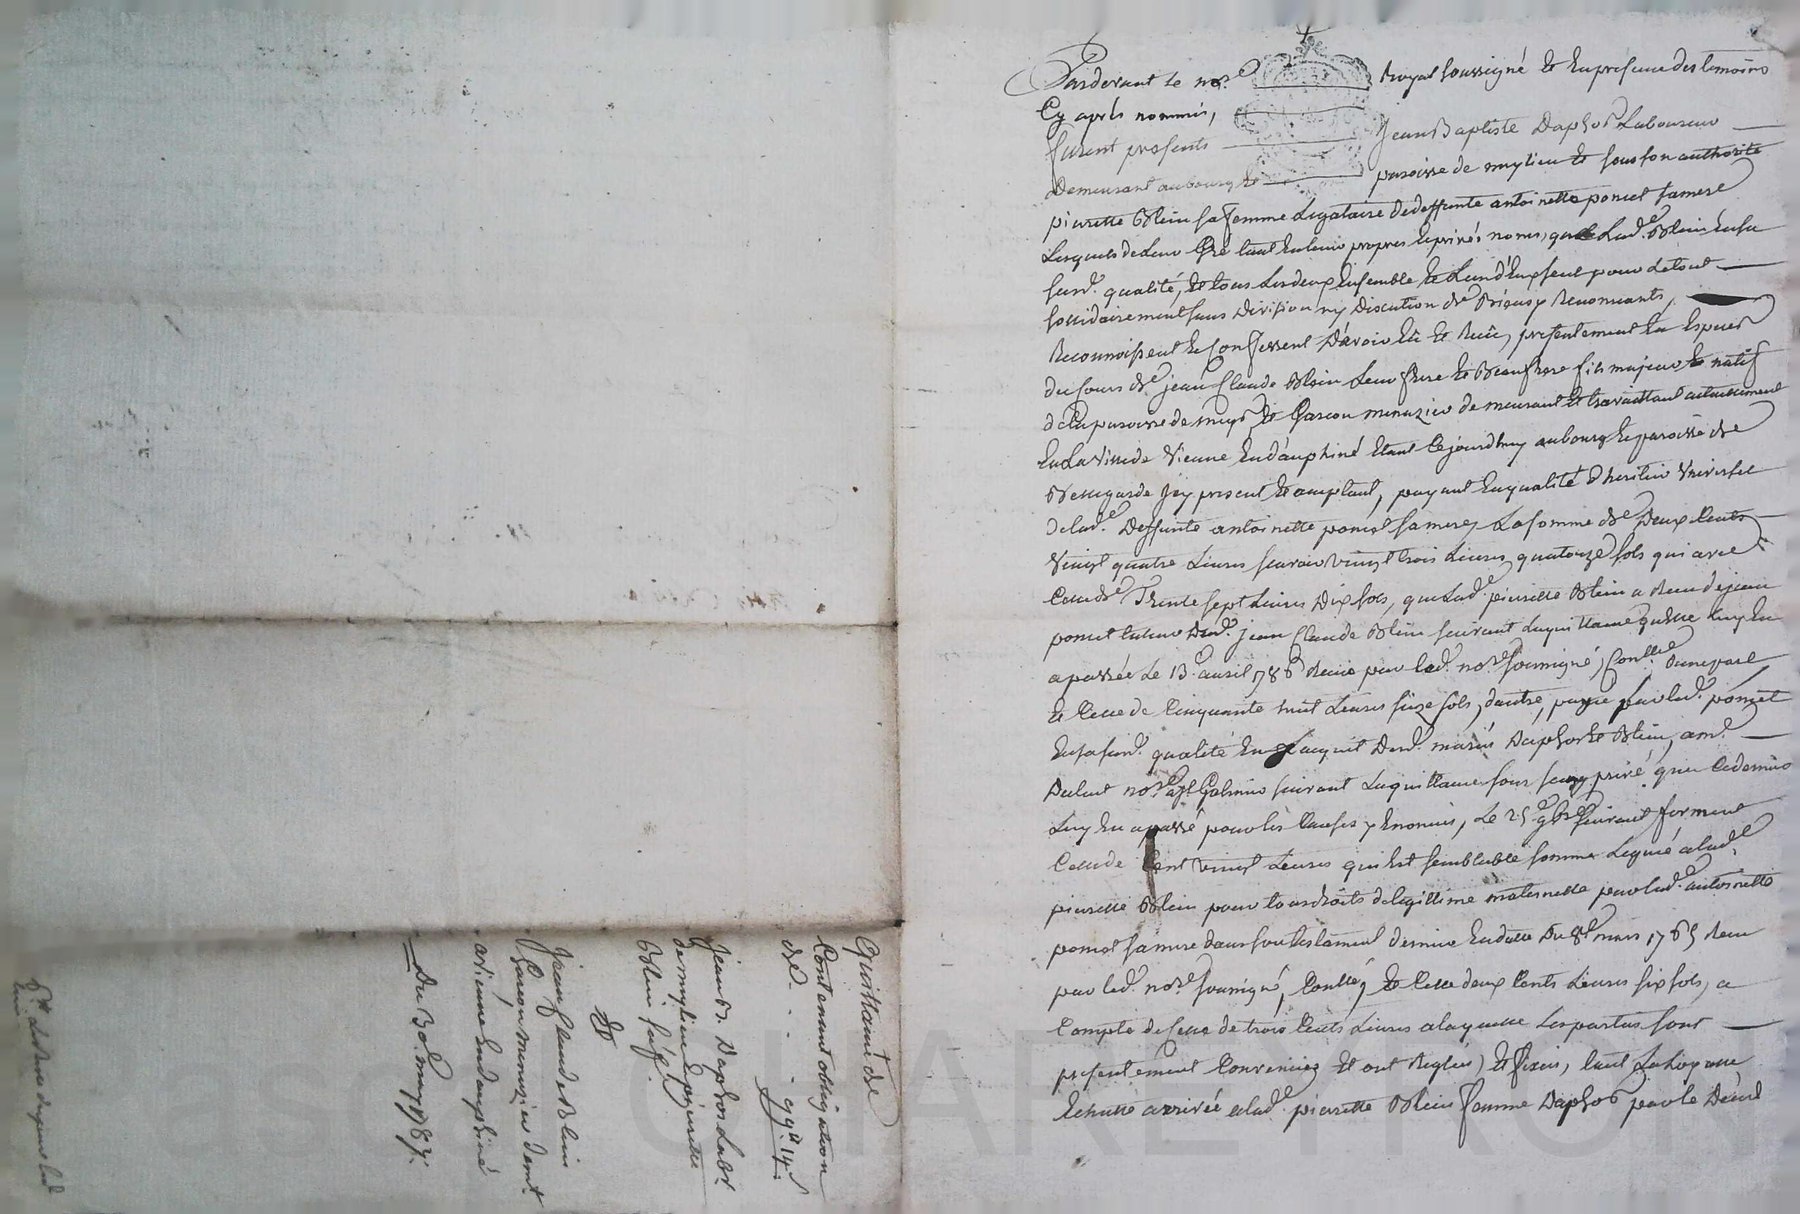 Pardevant le nore. Royal soussigné et en presence des temoins
Cy aprés nommés,
furent presents Jean Baptiste Daphos Laboureur
Demeurant au bourg et paroisse de mylieu et sous son authorité
pierrette Blein sa femme Legataire de deffunte antoinette poncet sa mere
Lesquels de Leur gré tant en Leurs propres et privés noms, que Lade. Blein en sa
susd. qualité, et tous Les deux Ensemble et L'un d'eux seul pour Le tout
sollidairement sans Division ny Discution de Biens y Renonçants,
Reconnoissent et Confessent D'avoir Eû et Reçû, presentement En Especes
du Cours de jean Claude Blein Leur frere et Beaufrere fils majeur et natif
de la paroisse de et Garçon menuzier demeurant et travaillant actuellement
En La Ville de Vienne En dauphiné Etant Cejourdhuy au bourg et paroisse de
Bellegarde Icy present et acceptant, payant En qualité d'heritier Universel
de lade. Deffunte antoinette poncet sa mere, La somme de Deux Cents
Vingt quatre Livres sçavoir vingt trois Livres quatorze sols qui avec
Celle de Trente sept Livres Dix sols, que Lade. pierrette Blein a Reçu de jean
poncet tuteur Dud. jean Claude Blein suivant La quittance qu'elle Luy En
a passée Le 13e. avril 1786 Recue par Led. nore. soussigné, Conllée. d'une part
et Celle de Cinquante huit Livres seize sols, d'autre, payée par Led. poncet
En sa susd. qualité En L'acquit Desd. mariés Daphos et Blein, a me.
Dulac nore. a St. Galmier suivant La quittance sous seing privé que Ce dernier
Luy En a passé pour Les Causes y Enoncées, Le 25e. 9bre. suivant, forment
Celle de Cent vingt Livres qui Est semblable somme Leguée a lade.
pierrette Blein pour tous droits de legittime maternelle par lade. antoinette
poncet sa mere dans son testament dernier En datte Du 8e. mars 1765 Recu
par Led. nore. soussigné, Conllé, et Celle deux Cents Livres six sols, a
Compte de Celle de trois Cents Livres a laquelle Les parties sont
presentement Convenües et ont Reglés, et fixés, tant La hoirie
Echutte arrivée a lade. pierrette Blein femme Daphos par le Décés
Quittance de
Contenant obligation
de - - - 99tt 14s
jean B. Daphos Labr.
de mylieu et pierrette
Blein sa fe.
a
Jean Claude Blein
Garçon menuzier demt.
a vienne En dauphiné
Du 30e. may 1787.